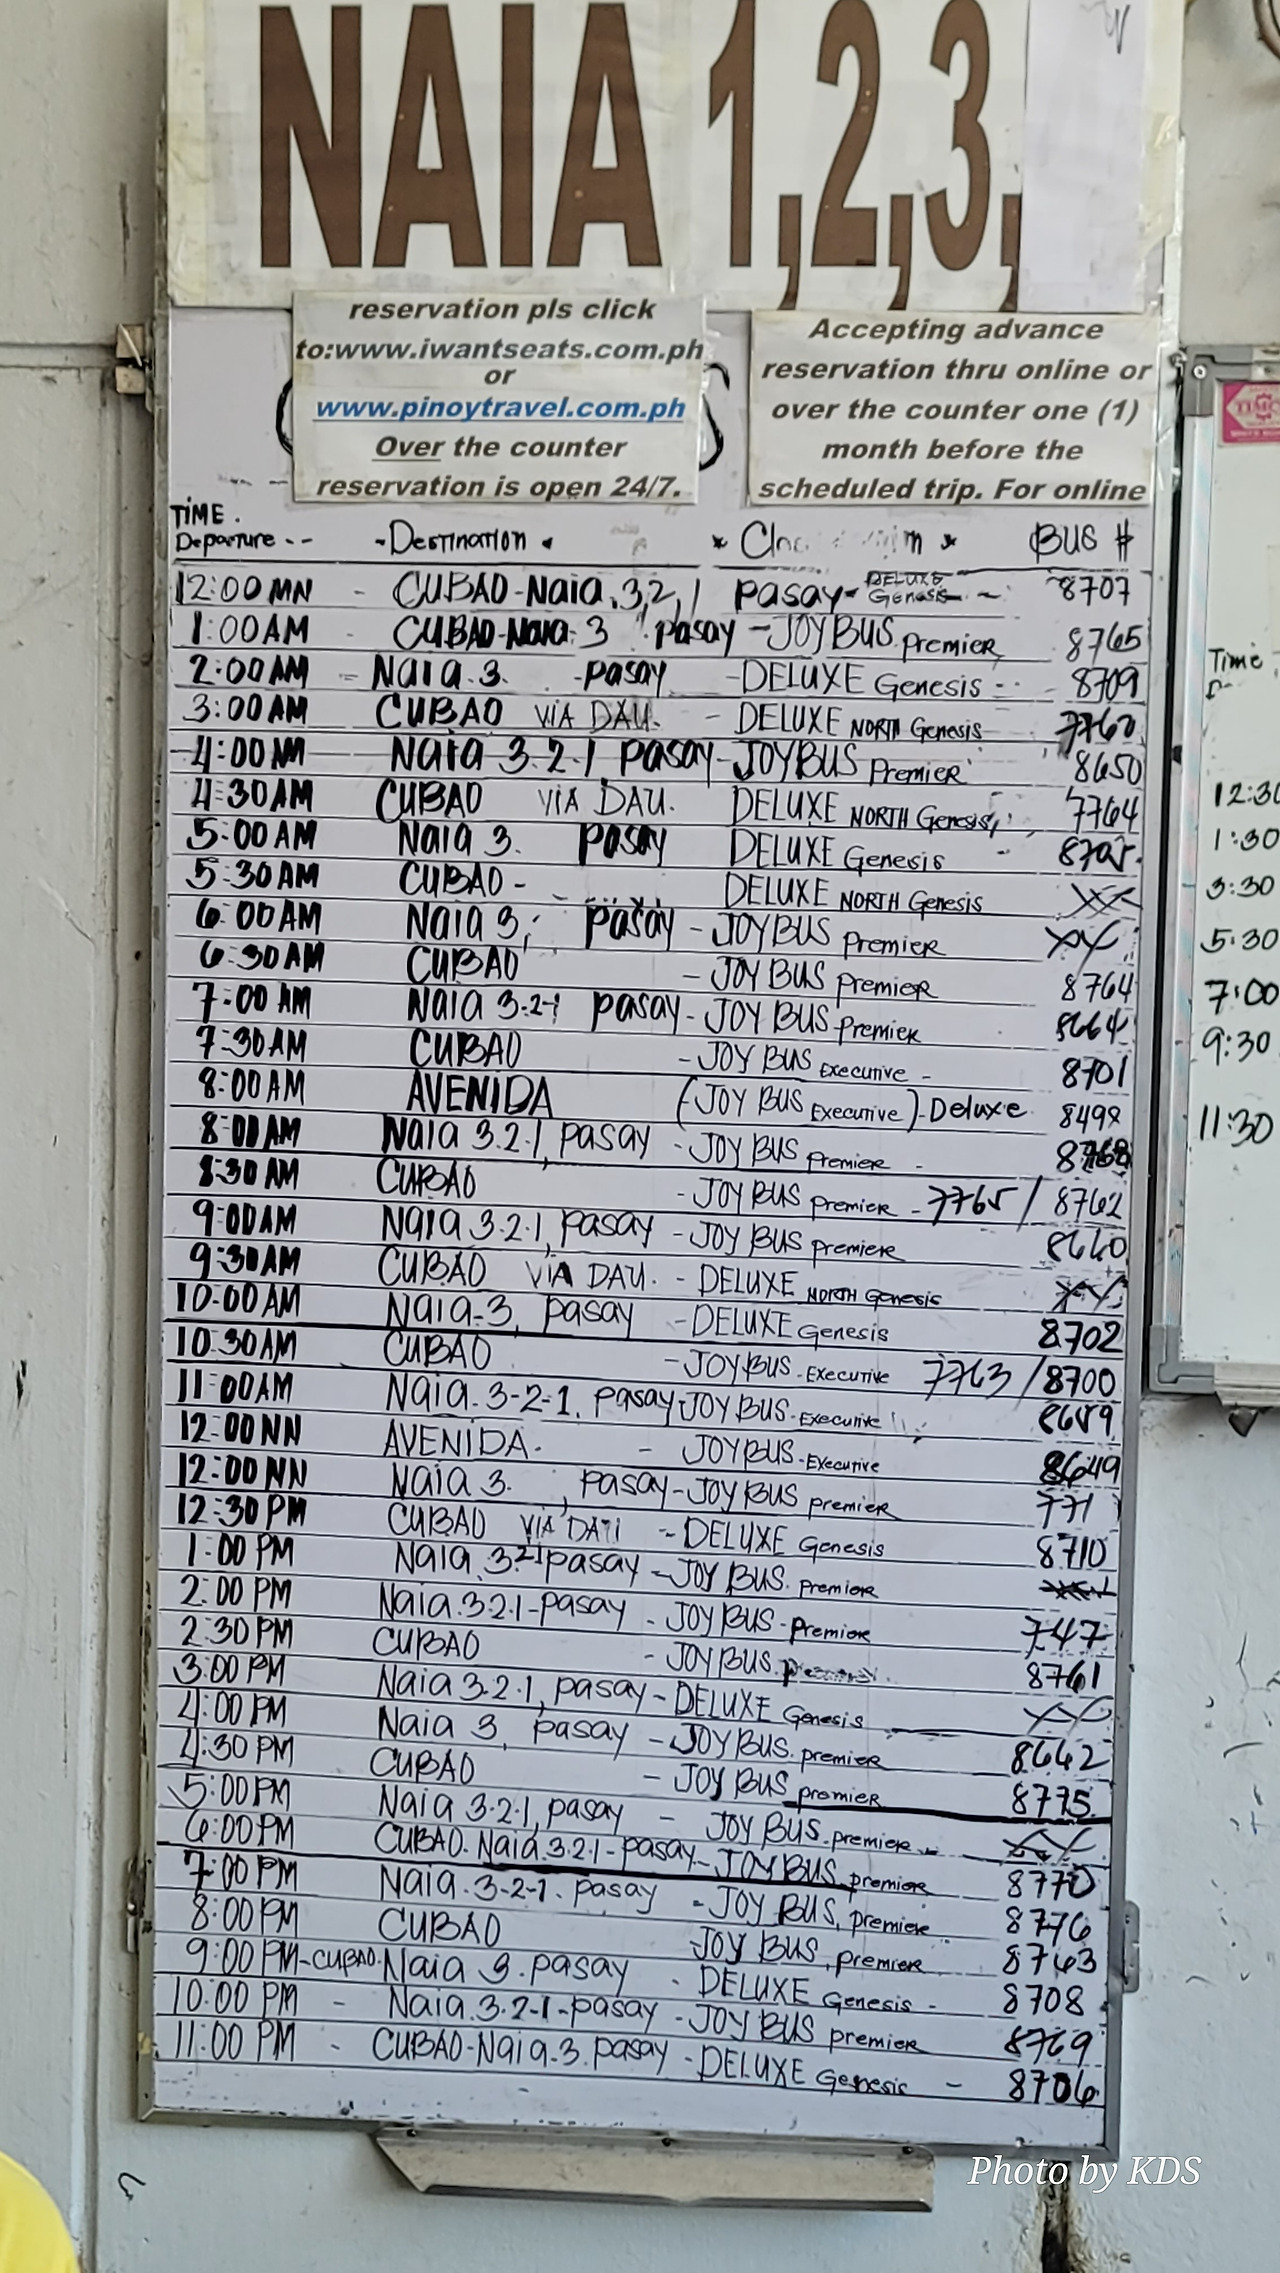 NAIA 1,2,3,
reservation pls click
to:www.iwantseats.com.ph
or
www.pinoytravel.com.ph
Over the counter
reservation is open 24/7.
Accepting advance
reservation thru online or
over the counter one (1)
month before the
scheduled trip. For online
TIME.
Departure -- - Destination BUS #
12:00 MN - CUBAO-Naia.3,2,1 Pasay- DELUXE Genesis - 8707
1:00AM - CUBAO-Naia. 3 Pasay - JOYBUS Premier 8765
2:00AM - Naia.3. -Pasay -DELUXE Genesis 8709
3:00AM CUBAO ViA DAU. - DELUXE NORTH Genesis 7760
4:00AM Naia 3.2.1 Pasay-JOYBUS Premier 8650
4:30AM CUBAO ViA DAU. DELUXE NORTH Genesis 7764
5:00AM Naia 3. Pasay DELUXE Genesis
5:30AM CUBAO - DELUXE NORTH Genesis
6:00AM Naia 3, Pasay - JOYBUS Premier
6:30AM CUBAO - JOY BUS Premier 8764
7:00 AM Naia 3.2-1 Pasay- JOY BUS Premier 8664
7:30AM CUBAO - JOY BUS Executive - 8701
8:00AM AVENIDA (JOY BUS Executive)-Deluxe 8498
8:00AM Naia 3.2.1, Pasay - JOY BUS Premier - 8768
8:30 AM CUBAO - JOY BUS Premier - 7765 / 8762
9:00AM Naia 3.2.1, Pasay - JOY BUS Premier 8660
9:30AM CUBAO ViA DAU. - DELUXE NORTH Genesis
10:00AM Naia-3, Pasay - DELUXE Genesis 8702
10:30AM CUBAO - JOYBUS - Executive 7763 /8700
11:00AM Naia.3-2-1. Pasay-JOY BUS-Executive 8659
12:00NN AVENIDA. - JOYBUS-Executive 8649
12:00 NN Naia 3. , Pasay-JOYBUS Premier 771
12:30 PM CUBAO ViA DAU - DELUXE Genesis 8710
1:00 PM Naia.321Pasay - JOY BUS. Premier
2:00 PM Naia.3.2.1-Pasay - JOY BUS - Premier 747
2:30 PM CUBAO - JOY BUS. 8761
3:00 PM Naia 3.2.1, Pasay - DELUXE Genesis
4:00 PM Naia 3, Pasay - JOYBUS. Premier 8662
4:30 PM CUBAO - JOY BUS Premier 8775
5:00PM Naia 3.2.1, Pasay - JOY BUS. Premier
6:00PM CUBAO. Naia.3.2.1-Pasay- JOYBUS Premier 8770
7:00 PM Naia.3-2-1. Pasay - JOY BUS, Premier 8776
8:00PM CUBAO JOY BUS, Premier 8763
9:00 PM-CUBAO.Naia 3. Pasay - DELUXE Genesis - 8708
10:00 PM - Naia.3.2-1-Pasay - JOY BUS Premier 8769
11:00 PM - CUBAO-Naia.3. Pasay - DELUXE Genesis - 8706
Time
12:30
1:30
3:30
5:30
7:00
9:30
11:30
Photo by KDS